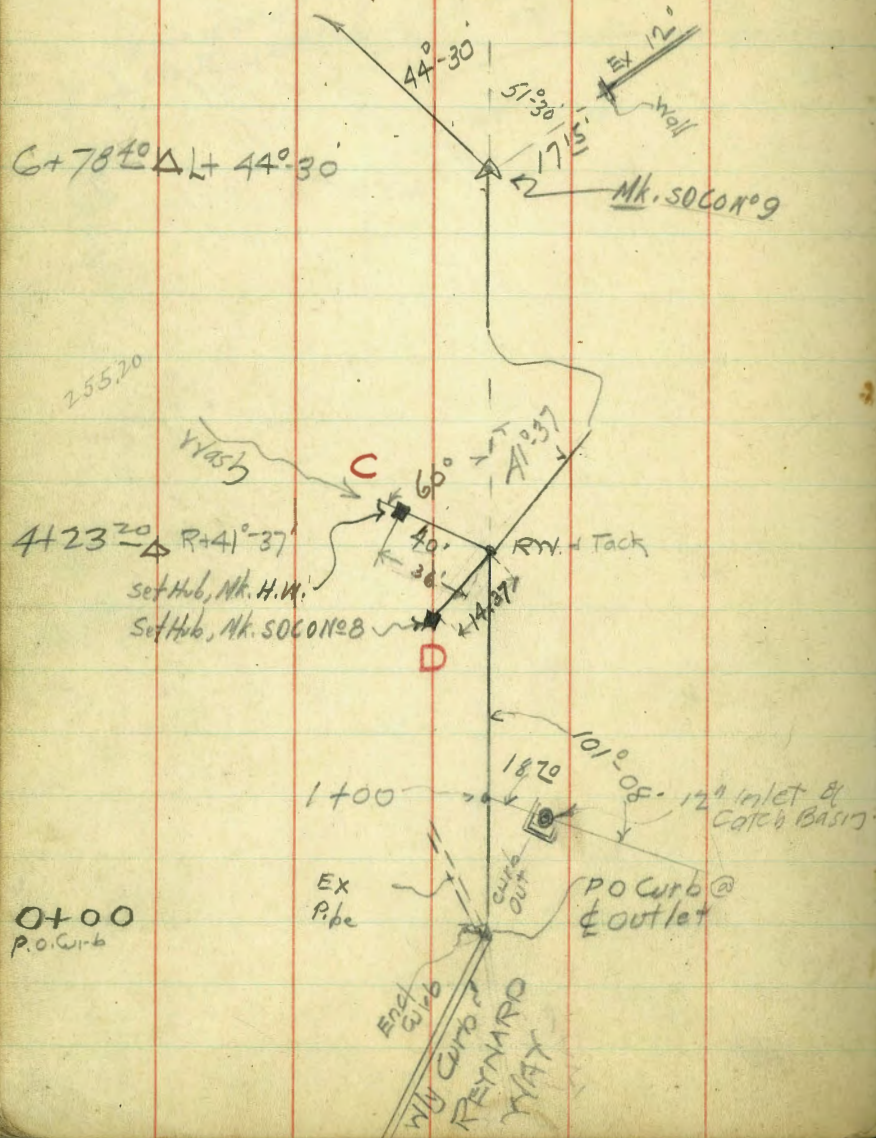 44°-30'
Ex 12"
51°-30'
Wall
17.5'
6+78 40 Δ L+ 44°-30'
Mk. SDCO Nº 9
255.20
Wash
C
60°
A1°-37
4+23 20 Δ R+41°-37'
40.
RW. & Tack
36'
Set Hub, Mk. H.W.
14.37'
Set Hub, Mk. SDCO Nº 8
D
101°-08'
18 20
1+00
12" Inlet &
Catch Basin
Curb
Out
Ex
Pipe
P O Curb @
₵ Outlet
0+00
P.O. Curb
End
Curb
W'ly Curb
REYNARD
WAY